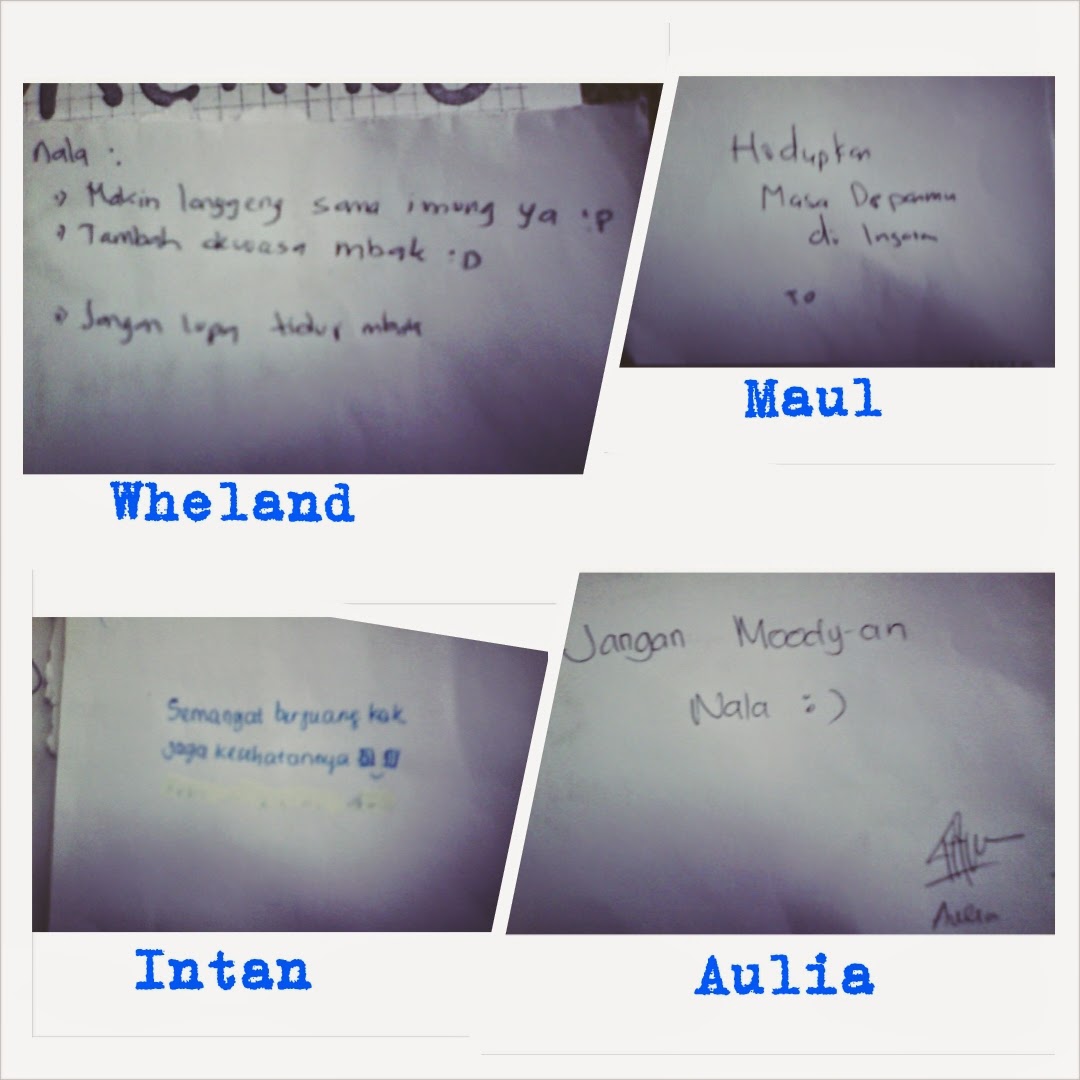 Nala :
Makin langgeng sama imung ya :p
Tambah dewasa mbak :D
Jangan lupa tidur mbak
Wheland
Hidupkan
Masa Depanmu
di Ingatan
TO
Maul
Semangat berjuang kak
jaga kesehatannya
Intan
Jangan Moody-an
Nala :)
Aulia
Aulia